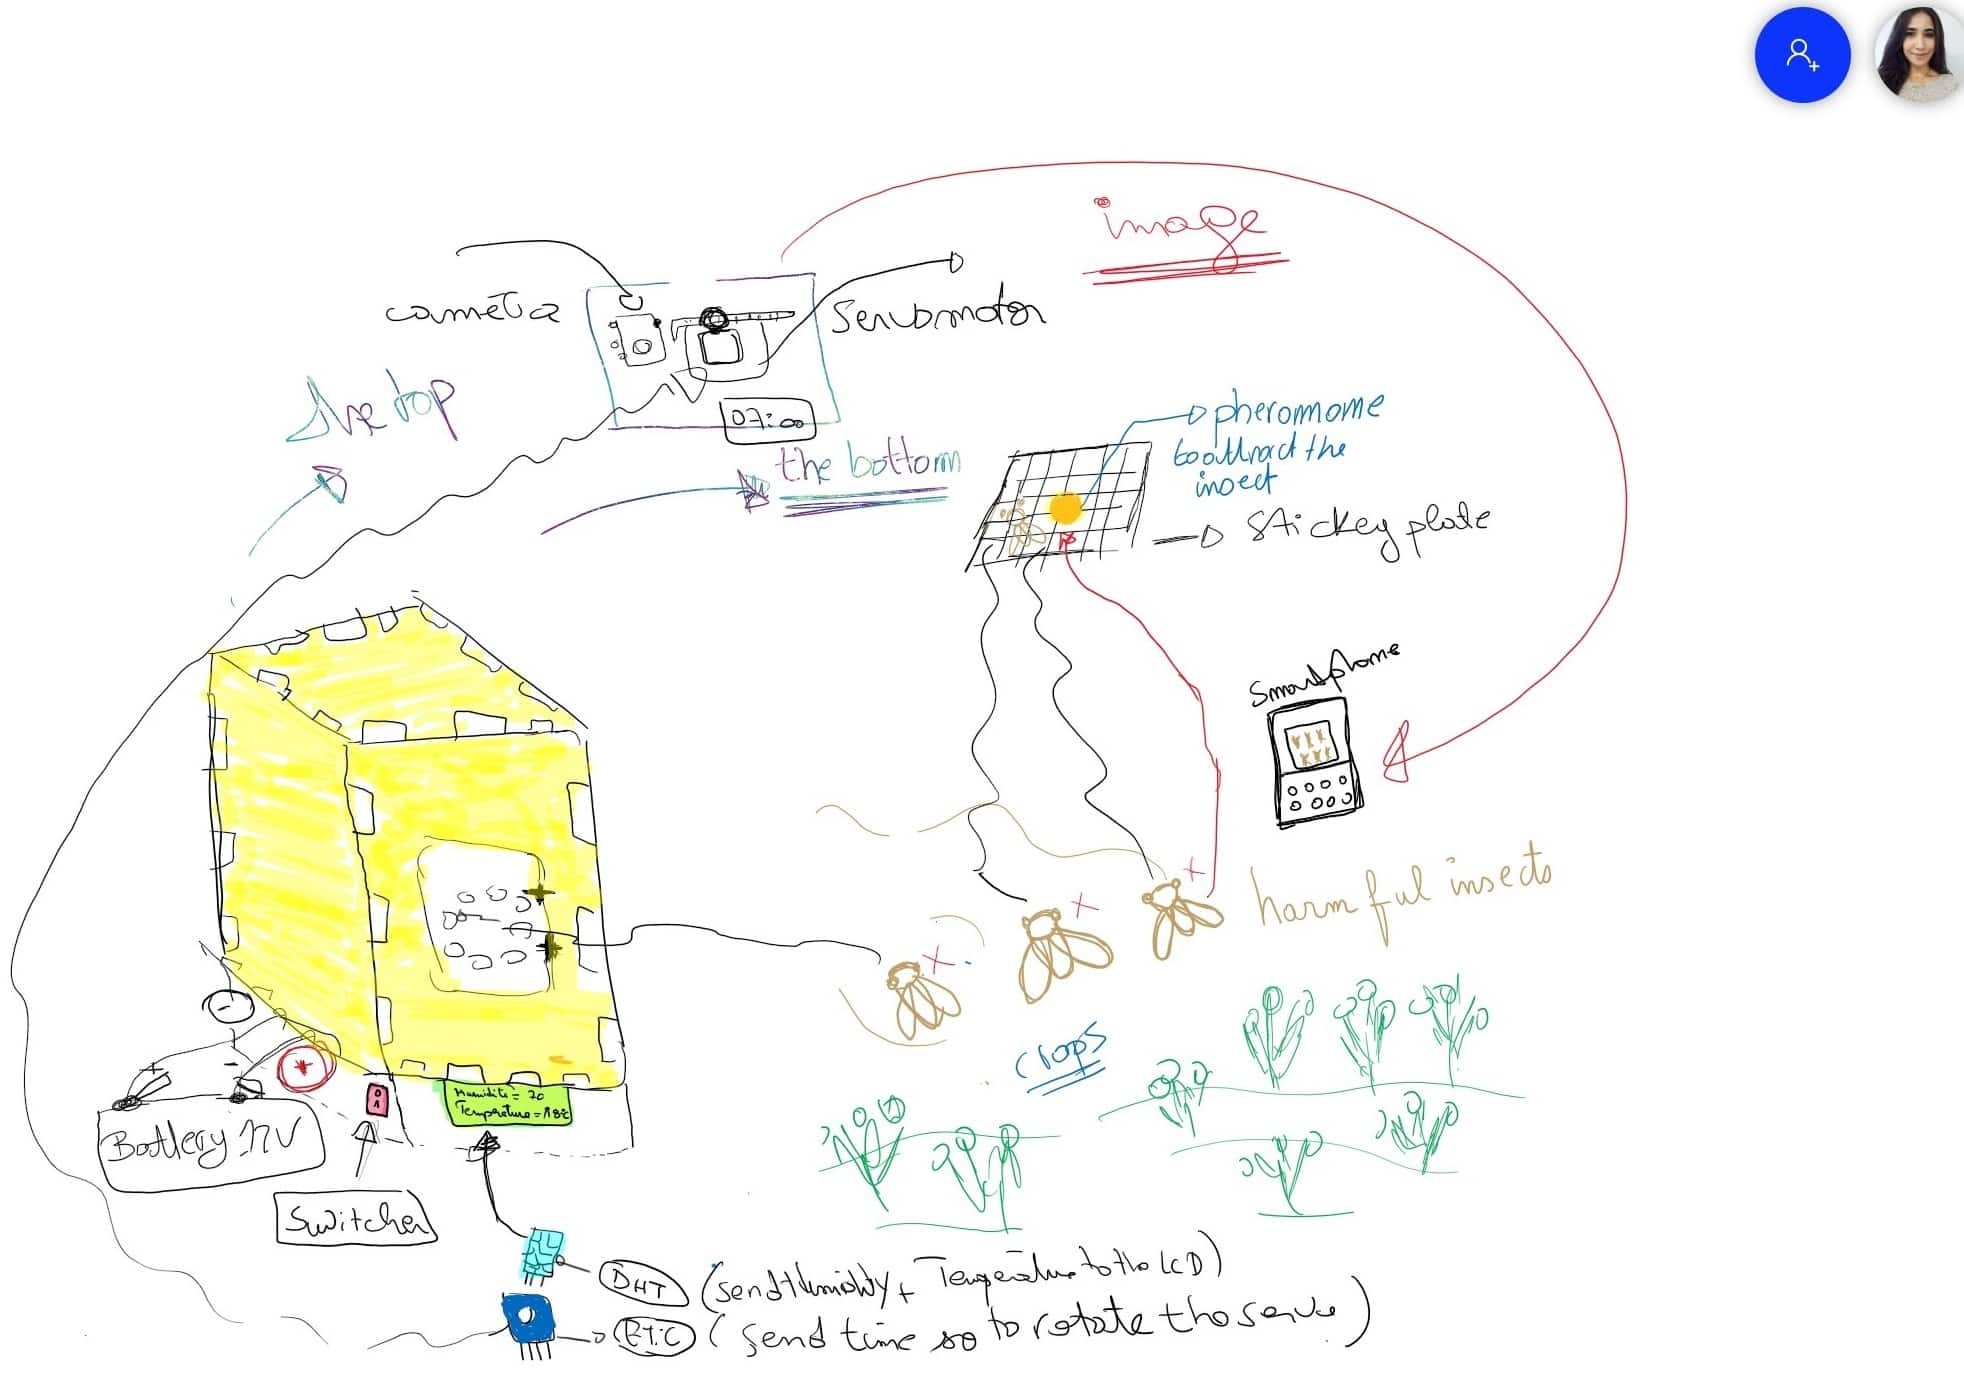 image
caméra
Servomotor
the top
07:00
the bottom
pheromome
to attract the
insect
Stickey plate
Smartphome
harmful insects
crops
-
+
+
-
Battery 12V
Switcher
Humidité = 70
Température = 18c
DHT (send Humidity + Temperature to the LCD)
RTC (send time so to rotate the servo)